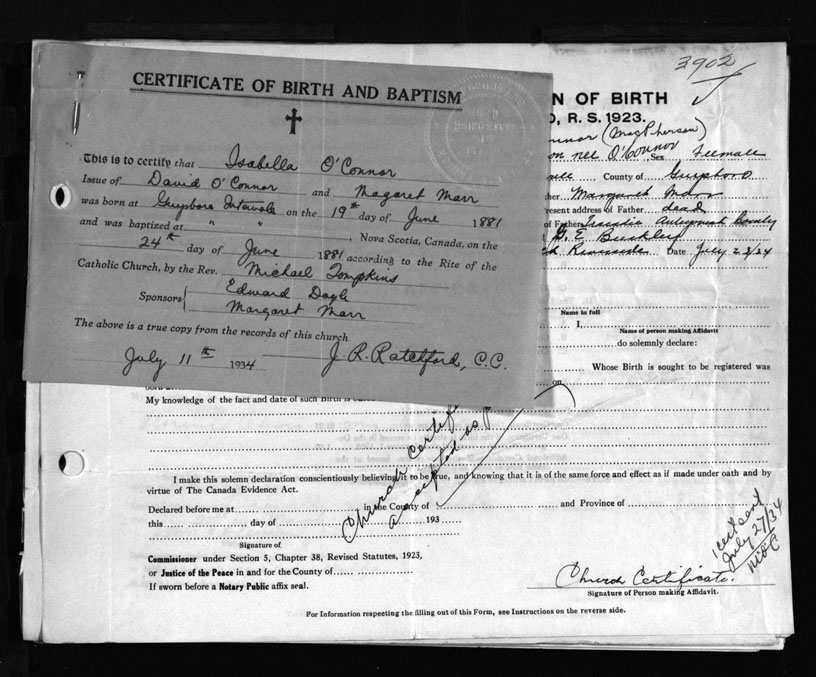 3902
CERTIFICATE OF BIRTH AND BAPTISM
This is to certify that Isabella O'Connor
Issue of David O'Connor and Magaret Marr
was born at Guysboro Intervale on the 19th day of June 1881
and was baptized at " " , Nova Scotia, Canada, on the
24th day of June 1881 according to the Rite of the
Catholic Church, by the Rev. Michael Tompkins
Sponsors { Edward Dogle
Margaret Marr
The above is a true copy from the records of this church
July 11th 1934 J. R. Ratchford, C.C.
N OF BIRTH
, R. S. 1923.
nnor (MacPherson)
on nee O'Connor Sex Female
County of Guysboro
ther Margaret Marr
resent address of Father dead
of Father
G. E. Buckley
Date July 23/34
Name in full
I,
Name of person making Affidavit
do solemnly declare:
Whose Birth is sought to be registered was
on
My knowledge of the fact and date of such Birth is
Church Certif
accepted as p
I make this solemn declaration conscientiously believing it to be true, and knowing that it is of the same force and effect as if made under oath and by
virtue of The Canada Evidence Act.
Declared before me at in the County of and Province of
this day of 193
Signature of
Commissioner under Section 5, Chapter 38, Revised Statutes, 1923,
or Justice of the Peace in and for the County of
If sworn before a Notary Public affix seal.
1 cert sent
July 27/34
Church Certificate.
Signature of Person making Affidavit.
For Information respecting the filling out of this Form, see Instructions on the reverse side.